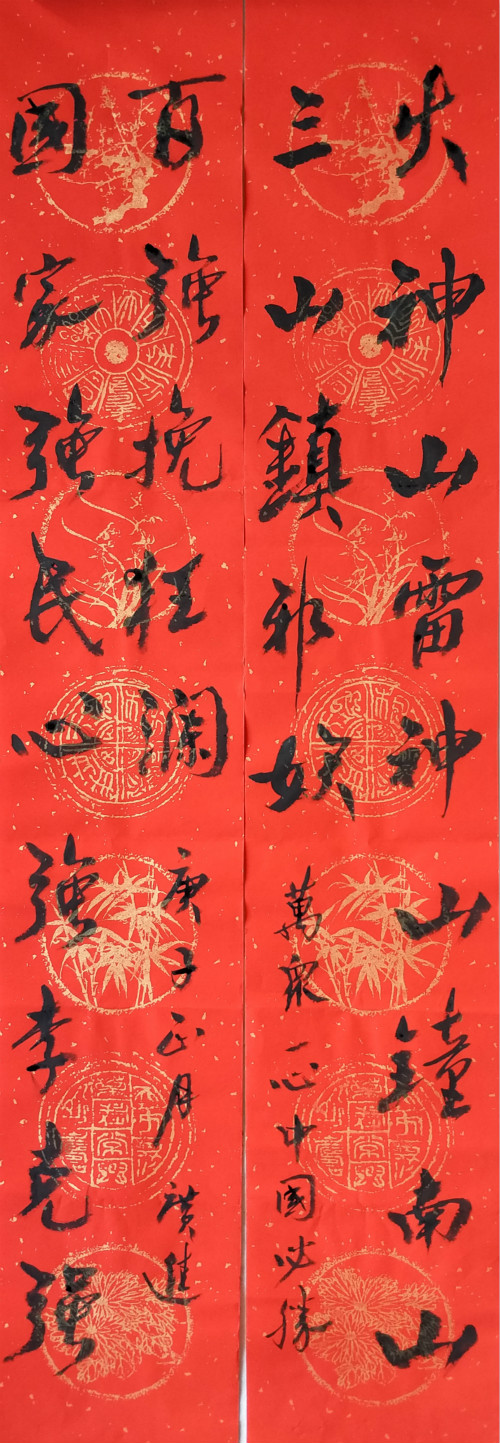 火神山雷神山鐘南山
三山鎮邪妖
萬眾一心中國必勝
國家強民心強李克強
百強挽狂澜
庚子正月